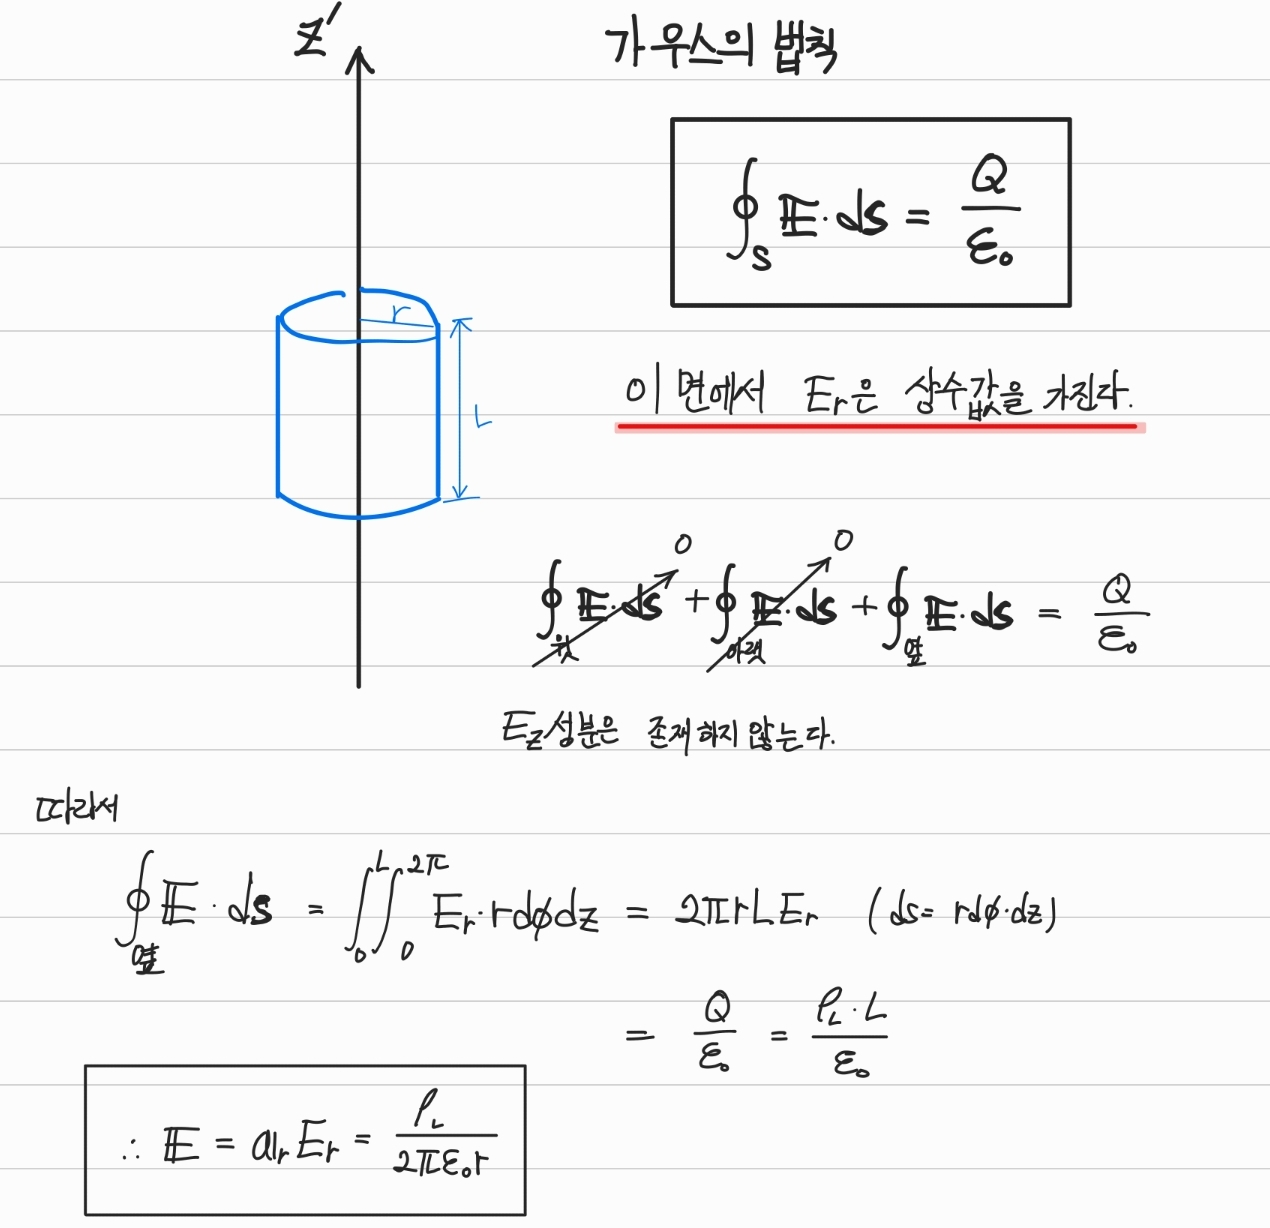 z′
가우스의 법칙
∮_S 𝔼·d𝐬 = Q/ε₀
r
이 면에서 E_r은 상수값을 가진다.
L
∮_윗 𝔼·d𝐬 + ∮_아랫 𝔼·d𝐬 + ∮_옆 𝔼·d𝐬 = Q/ε₀
0 0
E_z성분은 존재하지 않는다.
따라서
∮_옆 𝔼·d𝐬 = ∫₀^L ∫₀^2π E_r·rdϕdz = 2πrLE_r (ds= rdϕ·dz)
= Q/ε₀ = ρ_L·L/ε₀
∴ 𝔼 = 𝕒_r E_r = ρ_L/2πε₀r